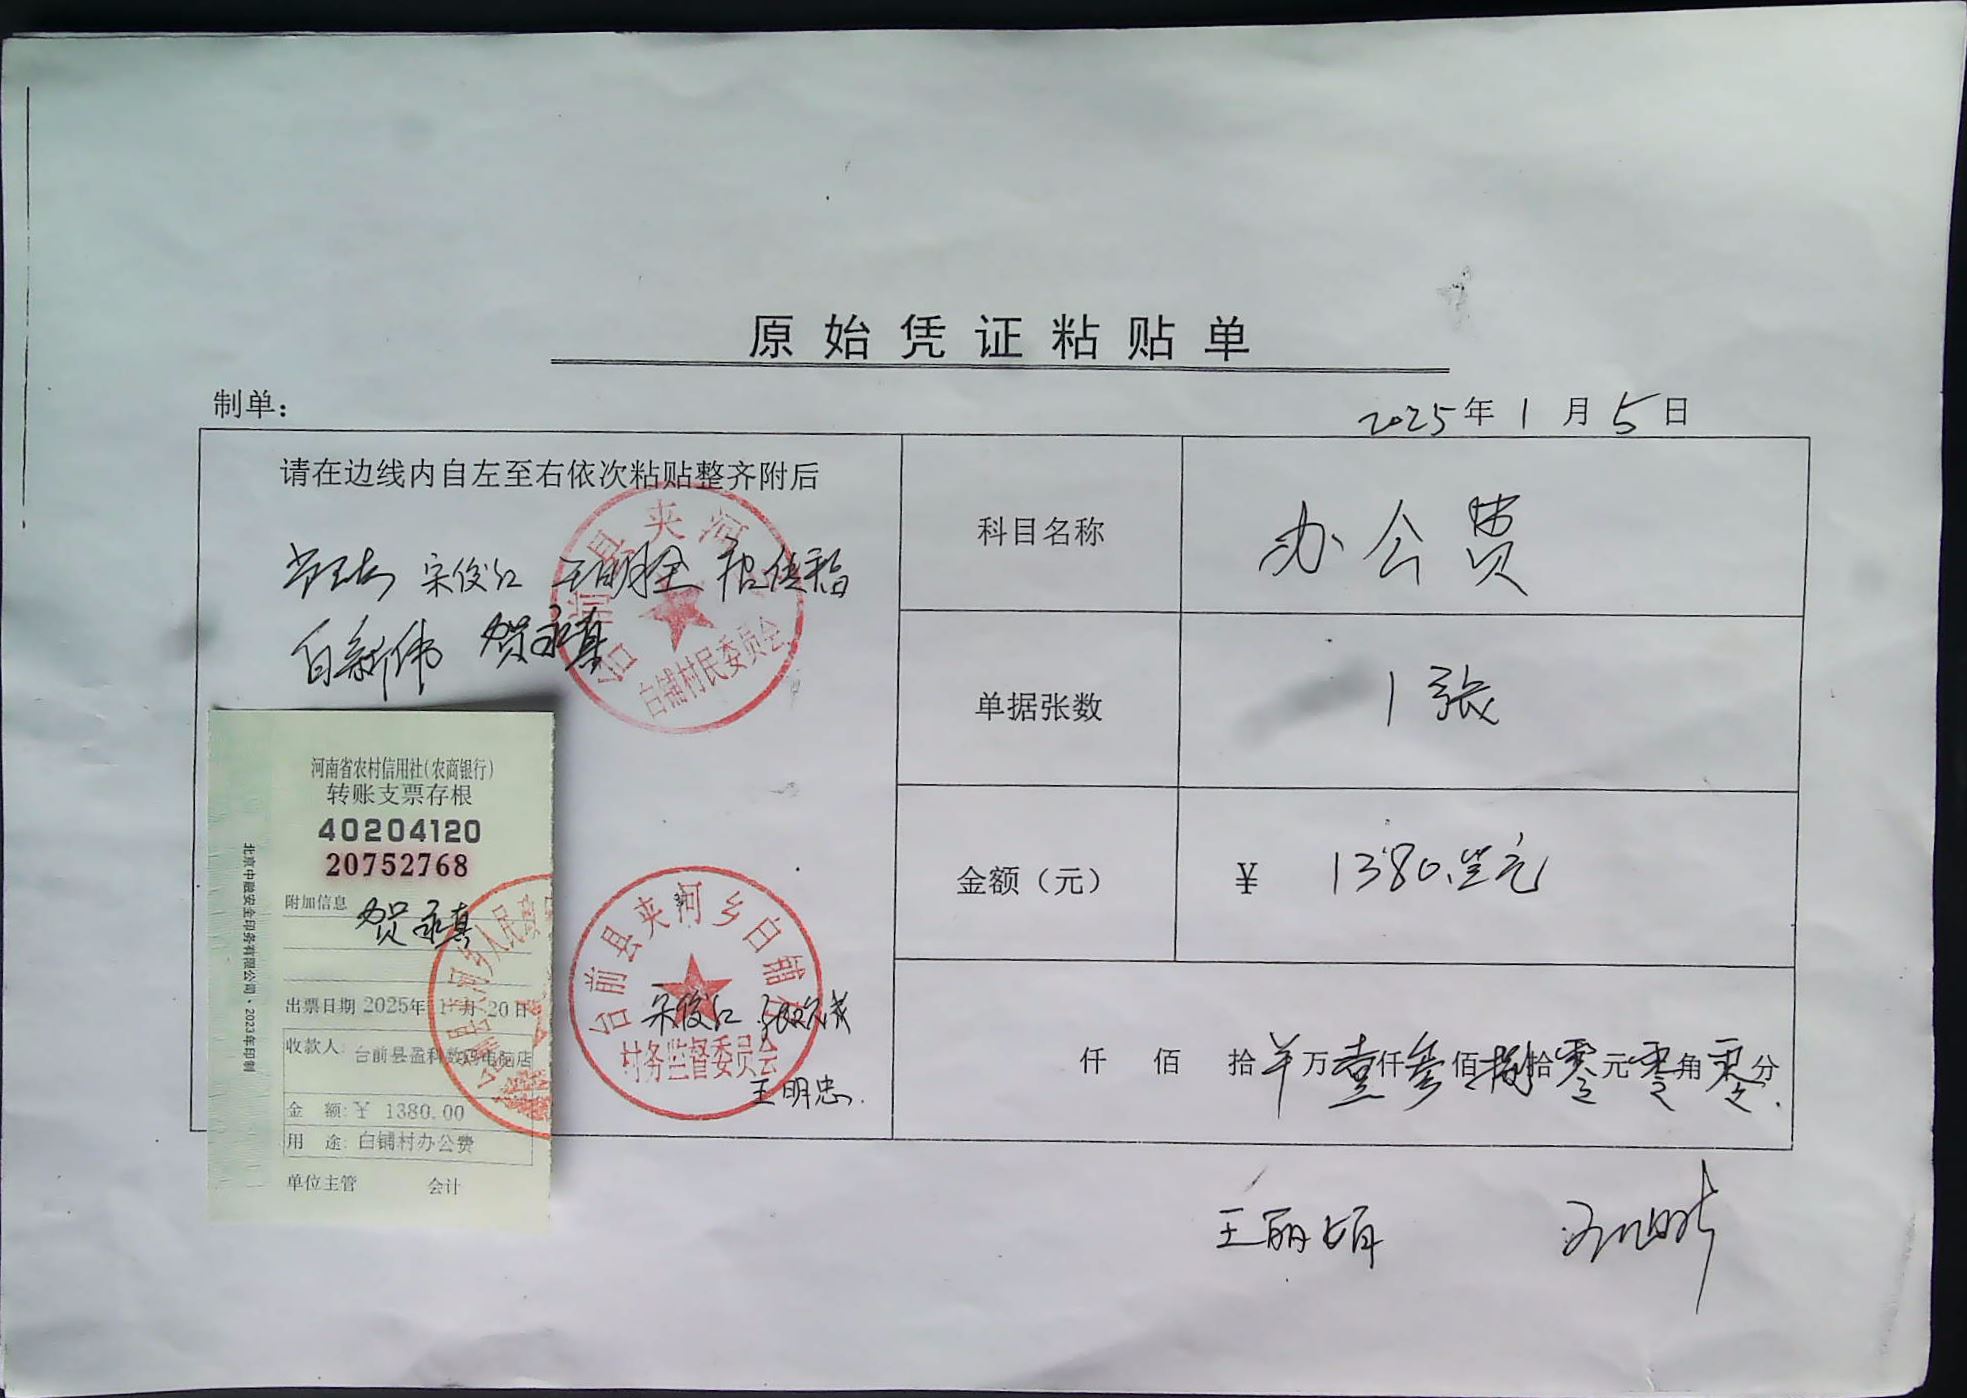 原始凭证粘贴单
制单：
2025年1月5日
请在边线内自左至右依次粘贴整齐附后
宋俊红
白新伟 贺永真
台前县夹河
白铺村民委员会
科目名称
办公费
单据张数
1张
金额（元）
¥ 1380.
仟 佰 拾 羊万壹仟叁佰捌拾零元零角零分
河南省农村信用社（农商银行）
转账支票存根
40204120
20752768
附加信息
贺永真
出票日期 2025年1月20日
收款人：台前县盈科数码电脑店
金 额：¥ 1380.00
用 途：白铺村办公费
单位主管 会计
北京中融安全印务有限公司·2023年印制
河乡人民
台前县夹河乡白铺
村务监督委员会
宋俊红
王明忠.
王丽娟